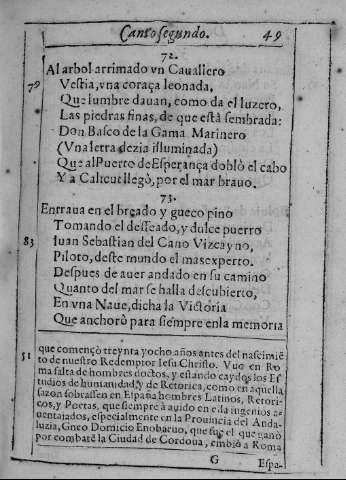 Canto segundo. 49
72.
Al arbol arrimado vn Cauallero
79 Vestia, vna coraça leonada,
Que lumbre dauan, como da el luzero,
Las piedras finas, de que està sembrada:
Don Basco de la Gama Marinero
(Vna letra dezia illuminada)
Que al Puerto de Esperança doblò el cabo
Y a Calicut llegò, por el mar brauo.
73.
Entraua en el breado y gueco pino
Tomando el desseado, y dulce puerro
83 Iuan Sebastian del Cano Vizcayno,
Piloto, deste mundo el mas experto.
Despues de auer andado en su camino
Quanto del mar se halla descubierto,
En vna Naue, dicha la Victoria
Que anchorò para siempre en la memoria
51 que començò treynta y ocho años antes del nascimiẽ
to de nuestro Redemptor Iesu Christo. Vuo en Ro
ma falta de hombres doctos, y estando caydos los Es
tudios de humanidad, y de Retorica, como en aquella
sazon sobrassen en España hombres Latinos, Retori-
cos, y Poetas, que siempre à auido en ella ingenios a-
uentajados, especialmente en la Prouincia del Anda-
luzia, Gneo Domicio Enobarao, que fue el que ganò
por combate la Ciudad de Cordoua, embiò a Roma
G Espa-